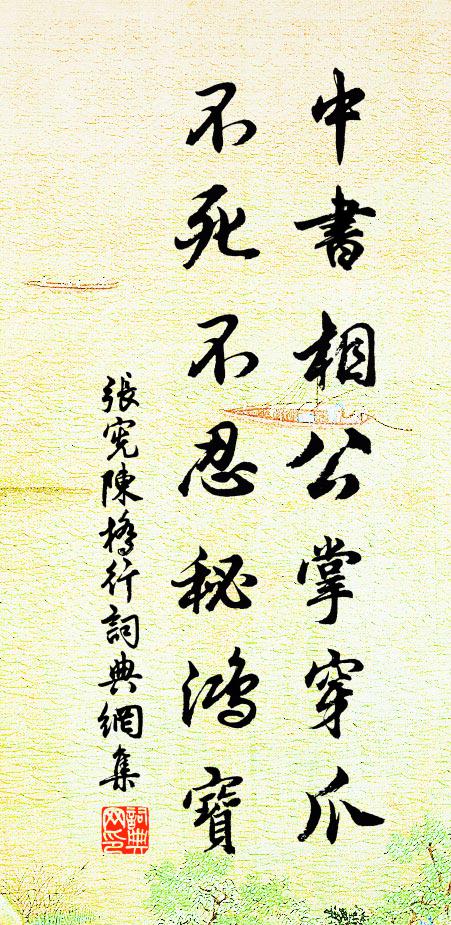 中書相公掌穿爪
不死不忍秘鴻寶
張憲陳橋行詞典網集
詞典網印